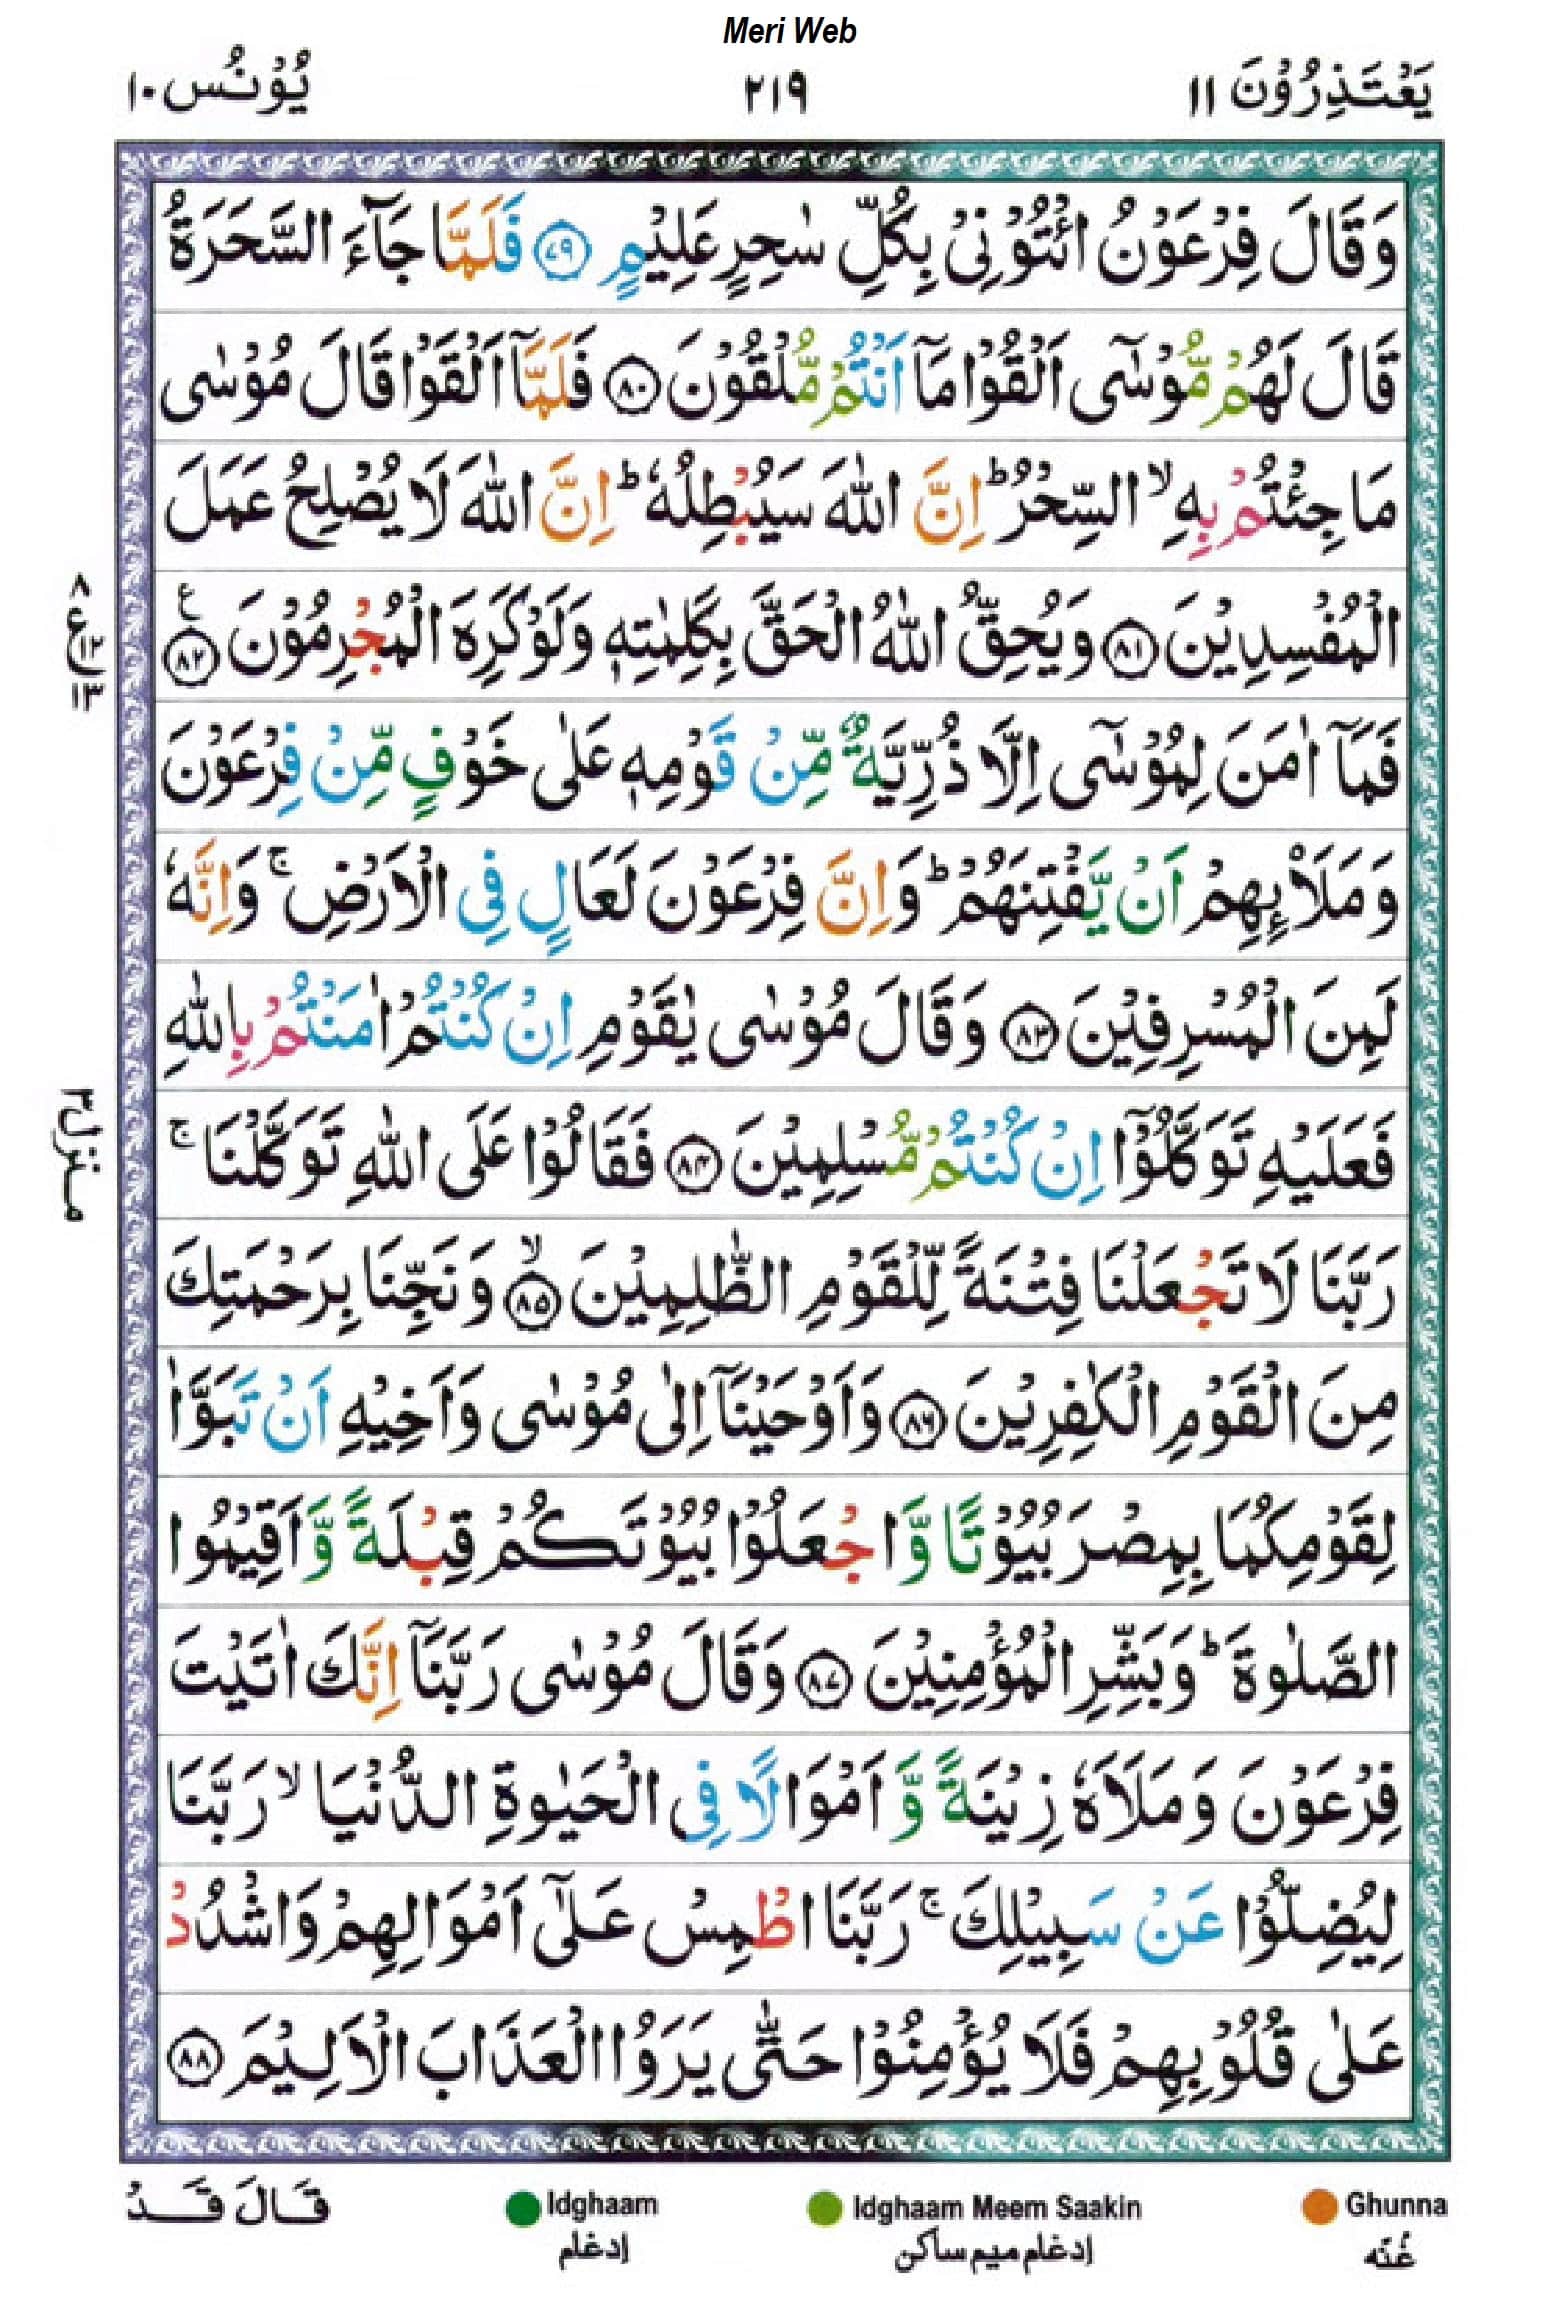 Meri Web
يَعْتَذِرُوْنَ ١١
٢١٩
يُوْنُس ١٠
وَقَالَ فِرْعَوْنُ ائْتُوْنِىْ بِكُلِّ سٰحِرٍ عَلِيْمٍ ٧٩ فَلَمَّا جَآءَ السَّحَرَةُ
قَالَ لَهُمْ مُّوْسٰٓى اَلْقُوْا مَآ اَنْتُمْ مُّلْقُوْنَ ٨٠ فَلَمَّآ اَلْقَوْا قَالَ مُوْسٰى
مَا جِئْتُمْ بِهِ ۙ السِّحْرُ ؕ اِنَّ اللّٰهَ سَيُبْطِلُهٗ ؕ اِنَّ اللّٰهَ لَا يُصْلِحُ عَمَلَ
الْمُفْسِدِيْنَ ٨١ وَيُحِقُّ اللّٰهُ الْحَقَّ بِكَلِمٰتِهٖ وَلَوْ كَرِهَ الْمُجْرِمُوْنَ ٨٢ ع
٨
ع ١٢
١٣
فَمَآ اٰمَنَ لِمُوْسٰٓى اِلَّا ذُرِّيَّةٌ مِّنْ قَوْمِهٖ عَلٰى خَوْفٍ مِّنْ فِرْعَوْنَ
وَمَلَا۟ئِهِمْ اَنْ يَّفْتِنَهُمْ ؕ وَاِنَّ فِرْعَوْنَ لَعَالٍ فِى الْاَرْضِ ۚ وَاِنَّهٗ
لَمِنَ الْمُسْرِفِيْنَ ٨٣ وَقَالَ مُوْسٰى يٰقَوْمِ اِنْ كُنْتُمْ اٰمَنْتُمْ بِاللّٰهِ
فَعَلَيْهِ تَوَكَّلُوْٓا اِنْ كُنْتُمْ مُّسْلِمِيْنَ ٨٤ فَقَالُوْا عَلَى اللّٰهِ تَوَكَّلْنَا ۚ
منزل ٣
رَبَّنَا لَا تَجْعَلْنَا فِتْنَةً لِّلْقَوْمِ الظّٰلِمِيْنَ ۙ ٨٥ وَنَجِّنَا بِرَحْمَتِكَ
مِنَ الْقَوْمِ الْكٰفِرِيْنَ ٨٦ وَاَوْحَيْنَآ اِلٰى مُوْسٰى وَاَخِيْهِ اَنْ تَبَوَّاٰ
لِقَوْمِكُمَا بِمِصْرَ بُيُوْتًا وَّاجْعَلُوْا بُيُوْتَكُمْ قِبْلَةً وَّاَقِيْمُوا
الصَّلٰوةَ ؕ وَبَشِّرِ الْمُؤْمِنِيْنَ ٨٧ وَقَالَ مُوْسٰى رَبَّنَآ اِنَّكَ اٰتَيْتَ
فِرْعَوْنَ وَمَلَاَهٗ زِيْنَةً وَّاَمْوَالًا فِى الْحَيٰوةِ الدُّنْيَا ۙ رَبَّنَا
لِيُضِلُّوْا عَنْ سَبِيْلِكَ ۚ رَبَّنَا اطْمِسْ عَلٰٓى اَمْوَالِهِمْ وَاشْدُدْ
عَلٰى قُلُوْبِهِمْ فَلَا يُؤْمِنُوْا حَتّٰى يَرَوُا الْعَذَابَ الْاَلِيْمَ ٨٨
قَالَ قَدْ
Idghaam Idghaam Meem Saakin Ghunna
إدغام إدغام ميم ساكن غُنّه